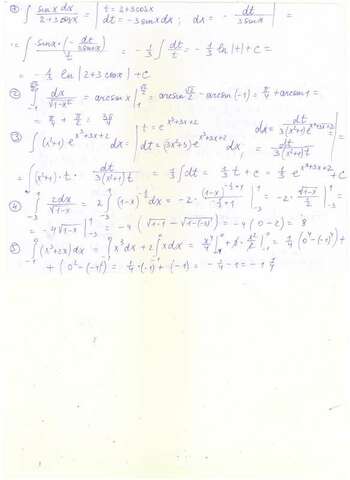 ① ∫ sin x dx / (2+3cos x) = | t = 2+3cos x ; dt = -3 sin x dx ; dx = - dt / (3 sin x) | =
= ∫ sin x · (- dt / (3 sin x)) / t = - 1/3 ∫ dt/t = - 1/3 ln|t| + c =
= - 1/3 ln|2+3cos x| + c
② ∫ dx / √(1-x²) = arcsin x | = arcsin √2/2 - arcsin(-1) = π/4 + arcsin 1 =
= π/4 + π/2 = 3π/4
③ ∫ (x²+1) e^(x³+3x+2) dx = | t = e^(x³+3x+2) ; dt = (3x²+3) e^(x³+3x+2) dx ; dx = dt / (3(x²+1) e^(x³+3x+2)) = dt / (3(x²+1) t) | =
= ∫ (x²+1) · t · dt / (3(x²+1) t) = 1/3 ∫ dt = 1/3 t + c = 1/3 e^(x³+3x+2) + c
④ ∫_{-3}^{1} 2dx / √(1-x) = 2 ∫_{-3}^{1} (1-x)^(-1/2) dx = -2 · (1-x)^(-1/2+1) / (-1/2+1) |_{-3}^{1} = -2 · √(1-x) / (1/2) |_{-3}^{1} =
= -4 √(1-x) |_{-3}^{1} = -4 (√(1-1) - √(1-(-3))) = -4 (0-2) = 8
⑤ ∫_{-1}^{0} (x³+2x) dx = ∫_{-1}^{0} x³ dx + 2 ∫_{-1}^{0} x dx = x⁴/4 |_{-1}^{0} + 2 · x²/2 |_{-1}^{0} = 1/4 (0⁴-(-1)⁴) +
+ (0²-(-1)²) = 1/4 · (-1) + (-1) = - 1/4 - 1 = -1 1/4